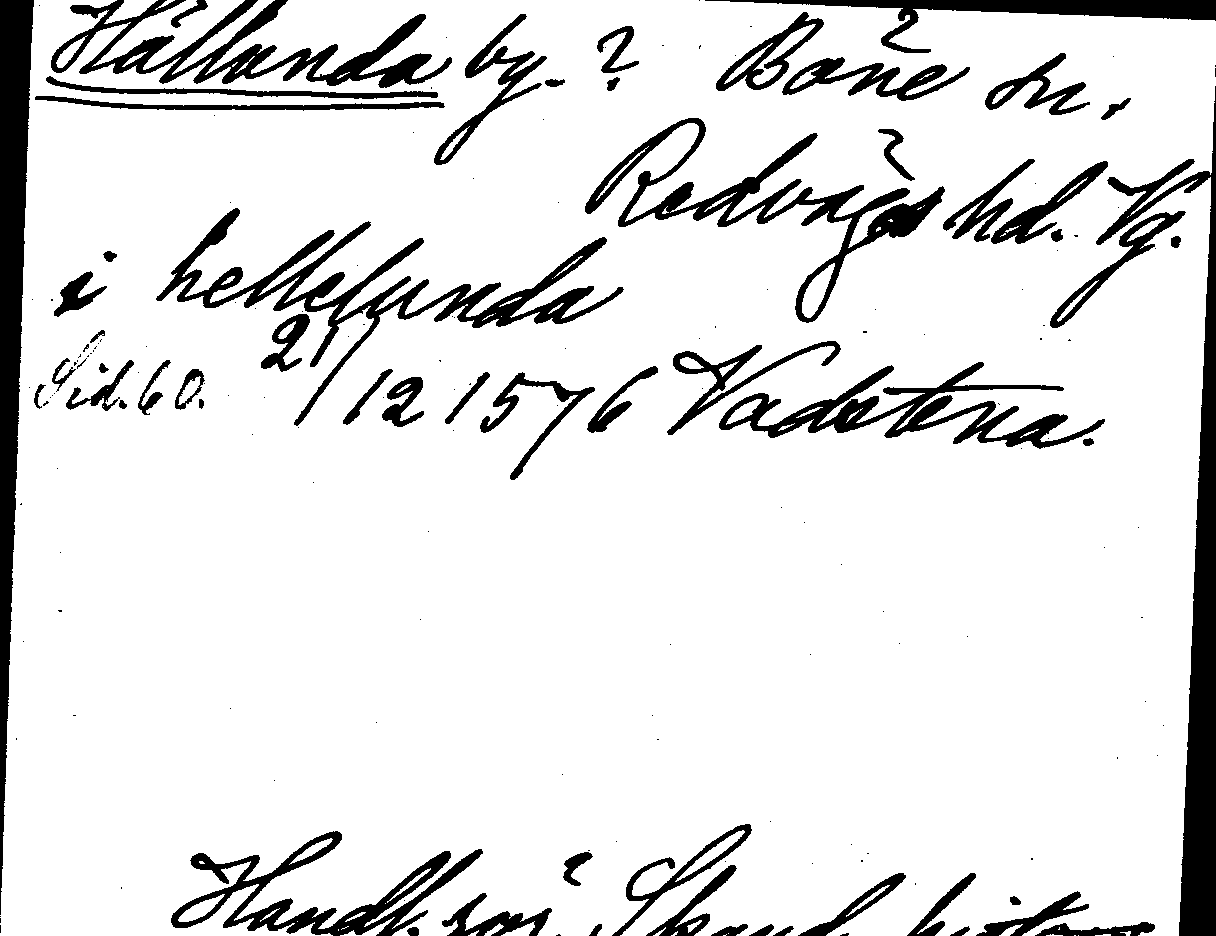 Hållunda by. ? Böne sn.
Redvägs hd. Vg.
i hellelunda
Sid. 60. 21/12 1576 Vadstena.
Handl. rör. Skand. histor